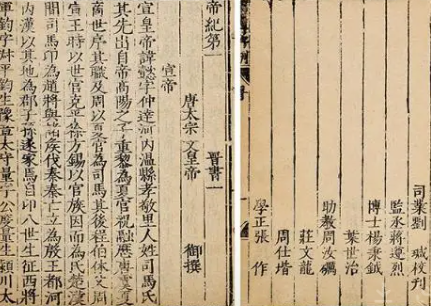 司業劉 珹校刋
監丞蔣遵烈
博士楊秉鉞
葉世治
助教周汝礪
莊文龍
周仕堦
學正張 作
帝紀第一 晉書一
唐太宗 文皇帝 御撰
宣帝
宣皇帝諱懿字仲達河内溫縣孝敬里人姓司馬氏
其先出自帝高陽之子重黎為夏官祝融歷唐虞夏
商世序其職及周以夏官為司馬其後程伯休父周
宣王時以世官克平徐方錫以官族因而為氏楚漢
間司馬卬為趙將與諸侯伐秦秦亡立為殷王都河
内漢以其地為郡子孫遂家焉自卬八世生征西將
軍鈞字叔平鈞生豫章太守量字公度量生潁川太